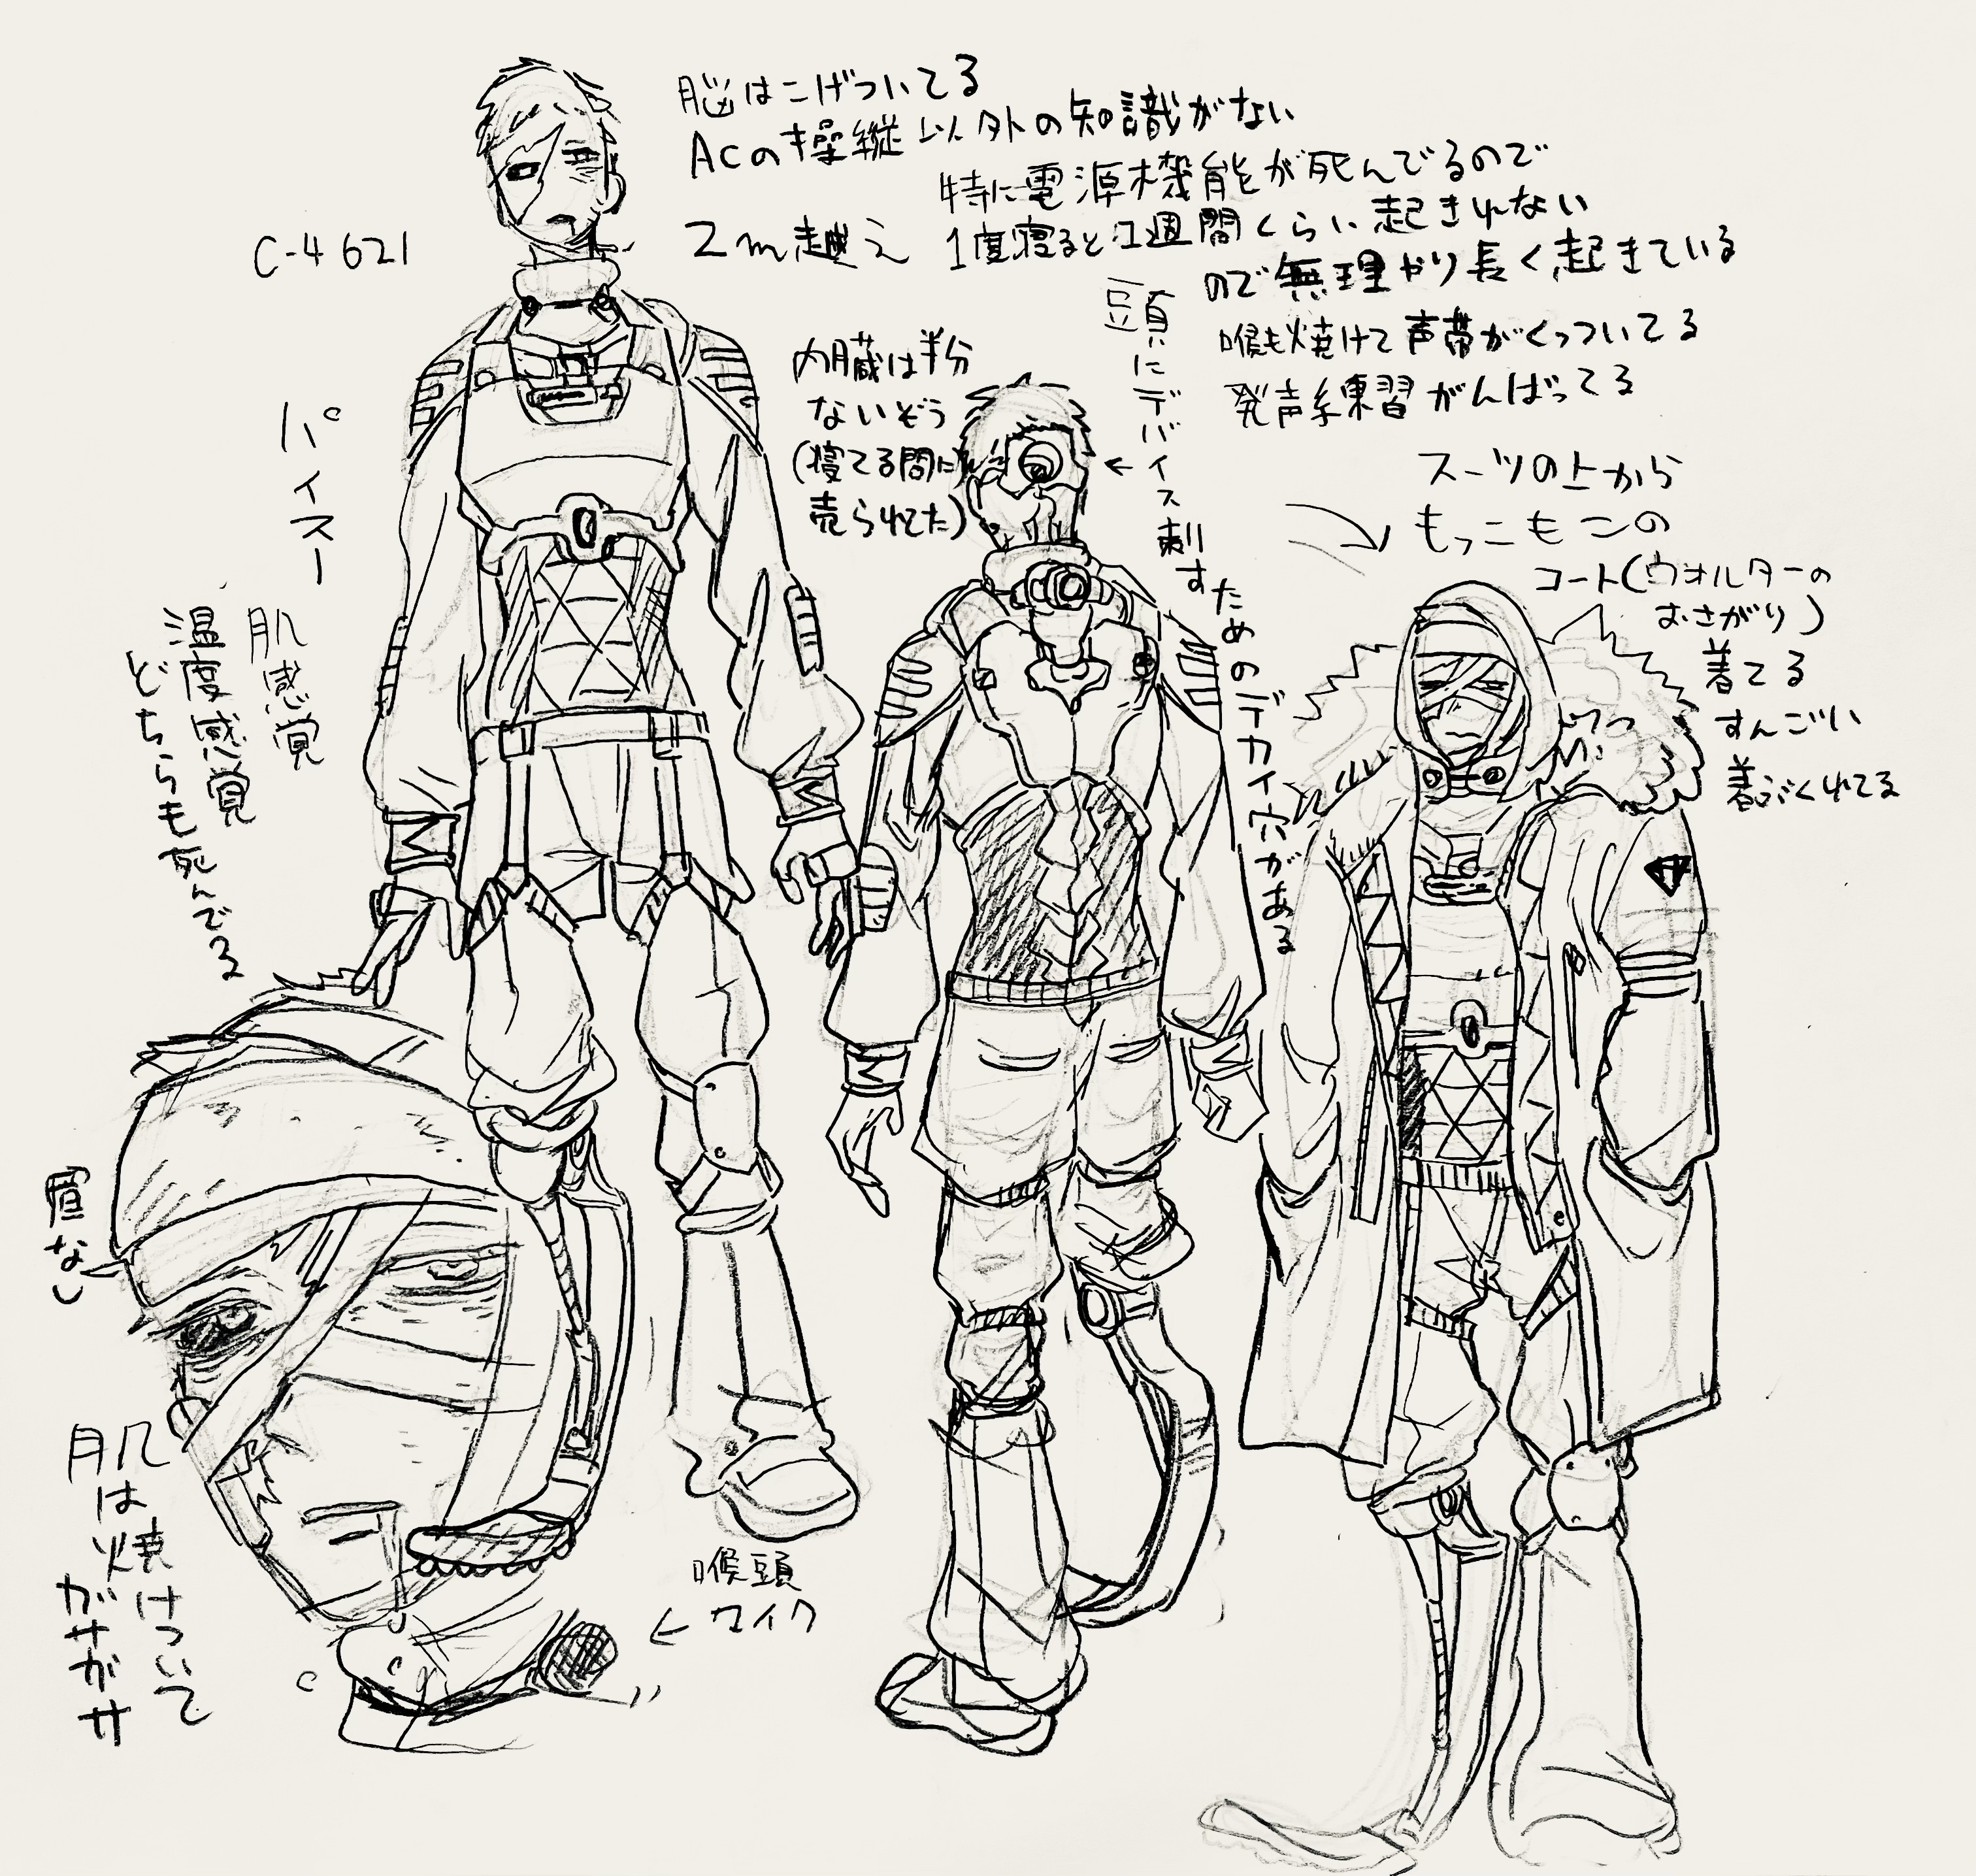 脳はこげついてる
ACの操縦以外の知識がない
特に電源機能が死んでるので
1度寝ると1週間くらい起きれない
ので無理やり長く起きている
喉も焼けて声帯がくっついてる
発声練習がんばってる
C-4 621
2m越え
パイスー
肌感覚
温度感覚
どちらも死んでる
内臓は半分
ないぞう
(寝てる間に
売られてた)
頭にデバイス刺す
ためのデカイ穴がある
スーツの上から
もっこもこの
コート(ウォルターの
おさがり)
着てる
すんごい
着ぶくれてる
眉なし
肌は焼けついて
ガサガサ
喉頭
マイク